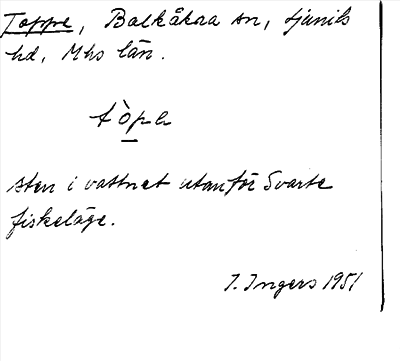 Toppe, Balkåkra sn, Ljunits
hd, Mhs län.
tòpe
sten i vattnet utanför Svarte
fiskeläge.
I. Ingers 1951